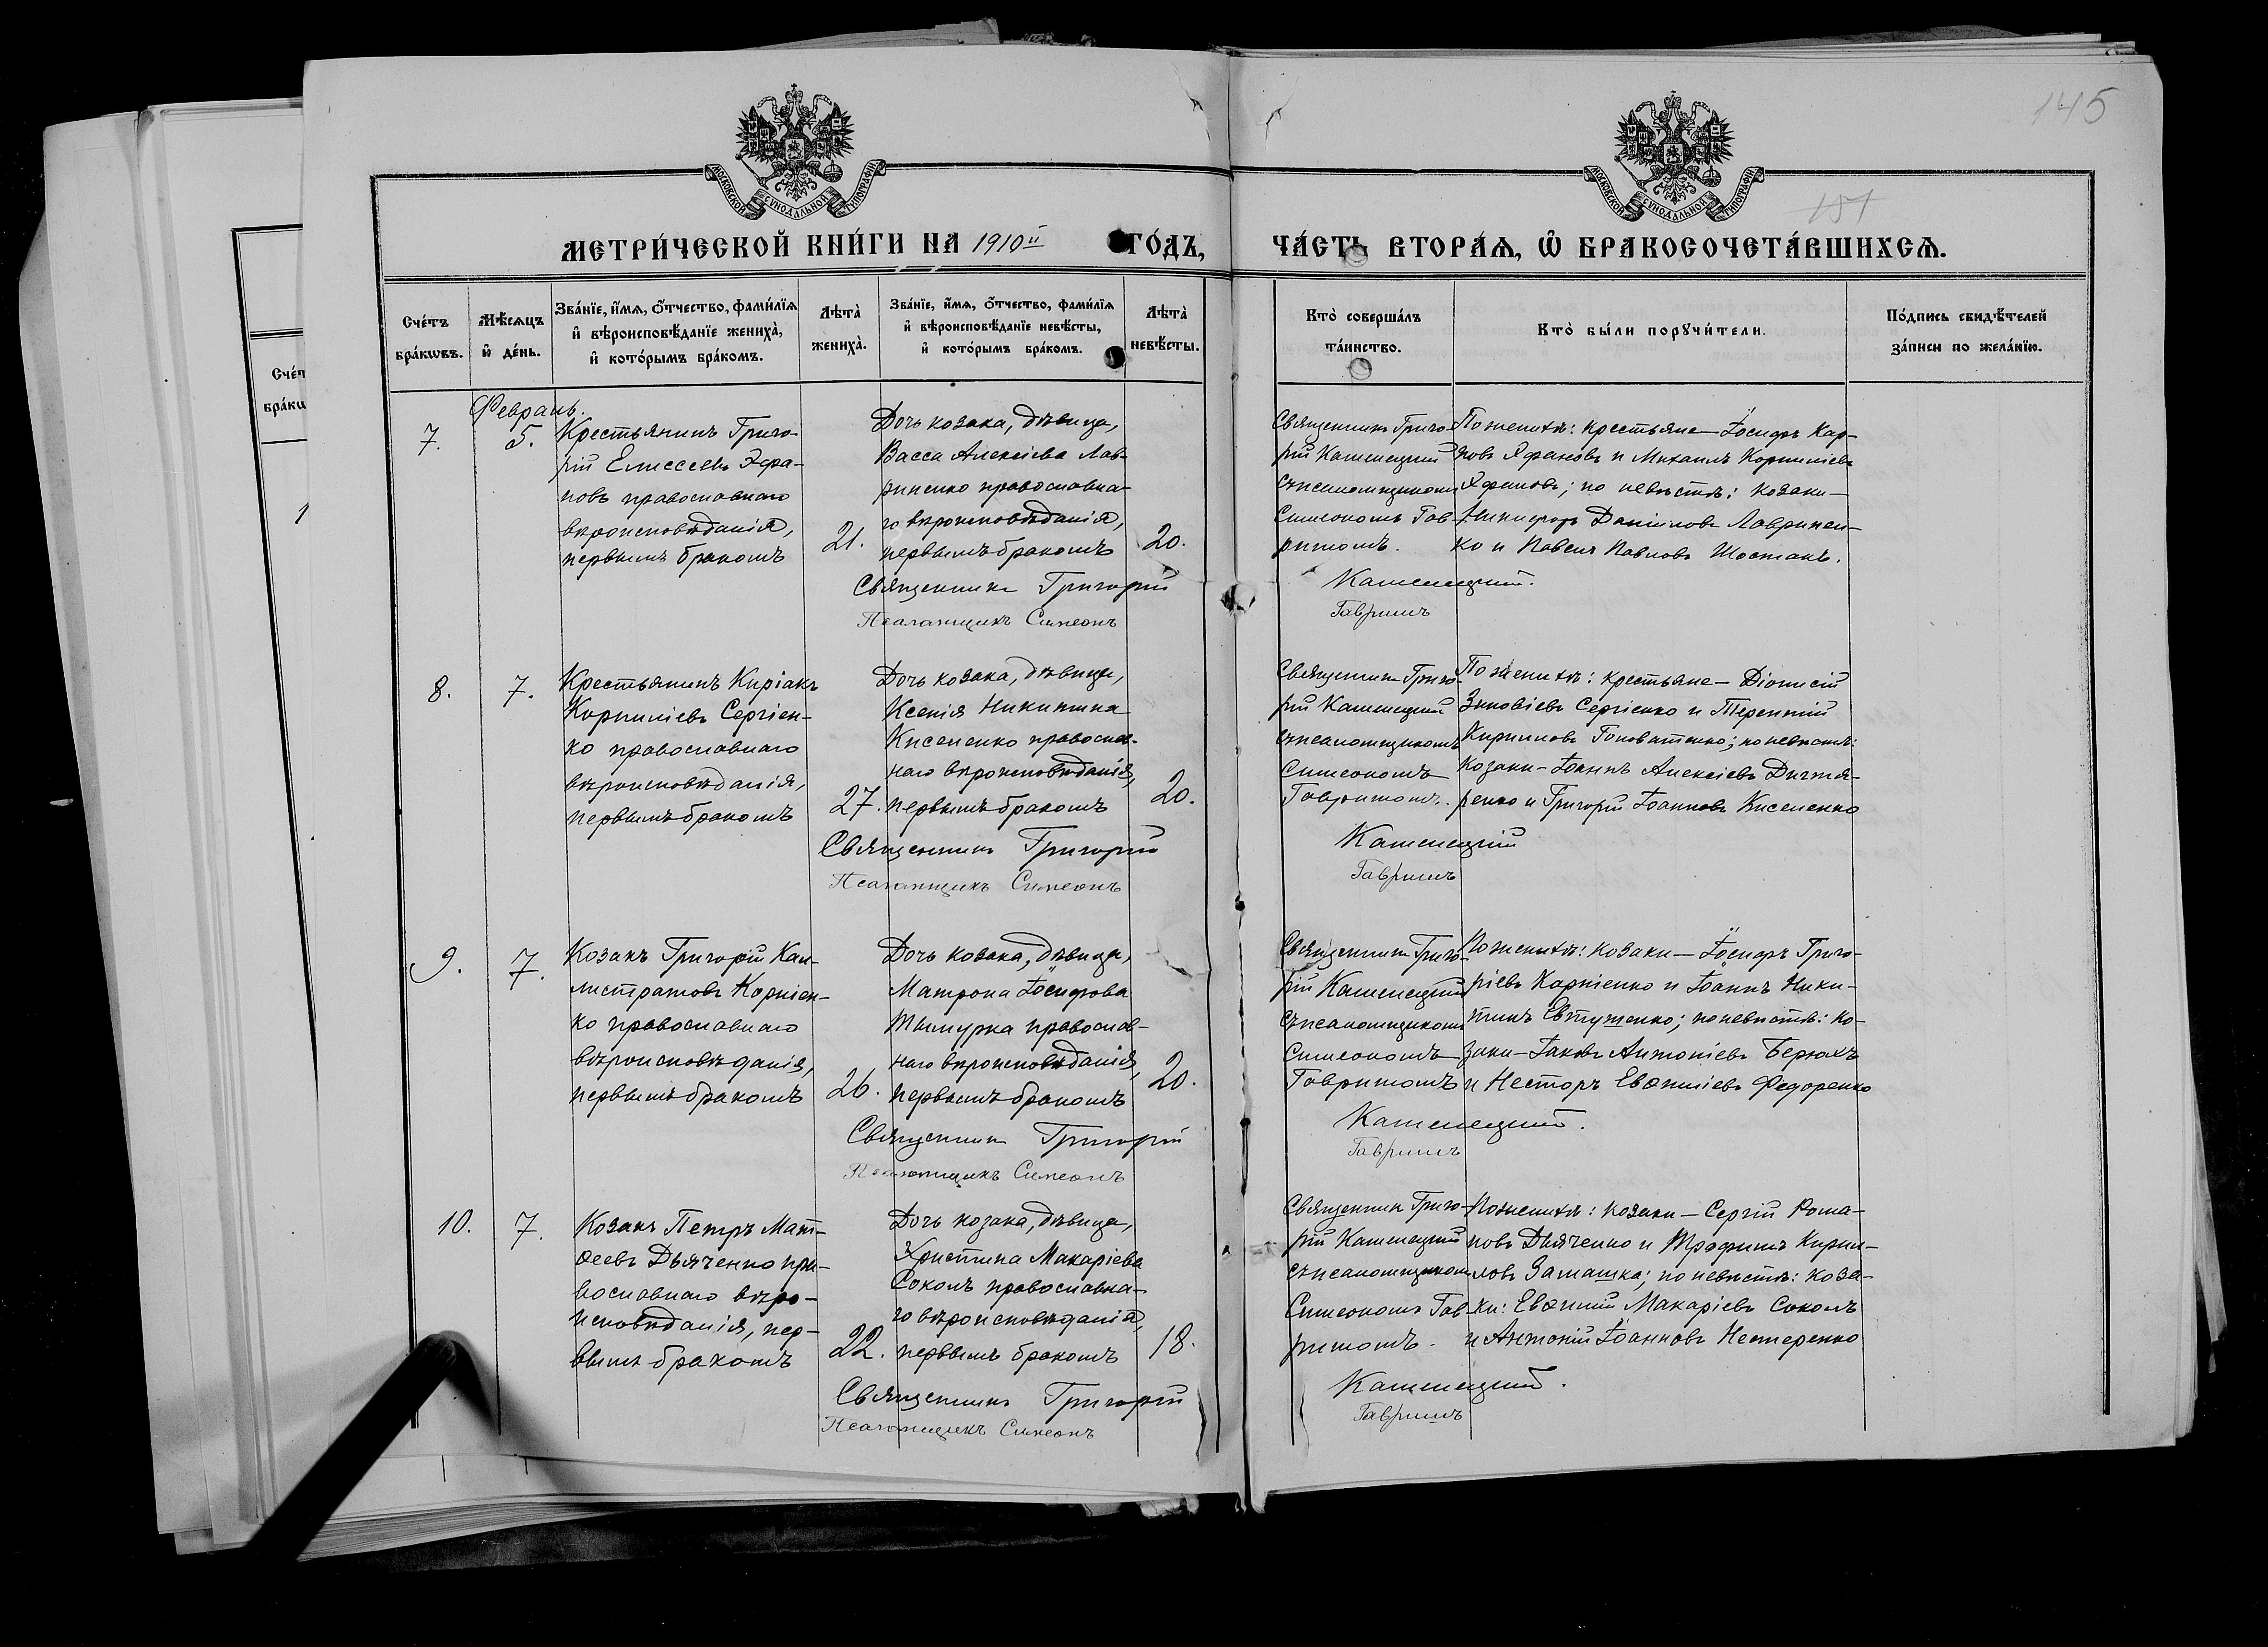 145
151
МОСКОВСКОЙ СѴНОДАЛЬНОЙ ТИПОГРАФІИ
МОСКОВСКОЙ СѴНОДАЛЬНОЙ ТИПОГРАФІИ
МЕТРИ́ЧЕСКОЙ КНИ́ГИ НА 1910й ГО́ДЪ,
ЧА́СТЬ ВТОРА́Ѧ, Ѽ БРАКОСОЧЕТА́ВШИХСѦ.
Сче́тъ
бра́кѡвъ.
Мѣ́сѧцъ
и҆ де́нь.
Зва́нїе, и҆́мѧ, ѻ҆́тчество, фами́лїѧ
и҆ вѣроисповѣ́данїе жениха̀,
и҆ кото́рымъ бра́комъ.
Лѣта̀
жениха̀.
Зва́нїе, и҆́мѧ, ѻ҆́тчество, фами́лїѧ
и҆ вѣроисповѣ́данїе невѣ́сты,
и҆ кото́рымъ бра́комъ.
Лѣта̀
невѣ́сты.
Кто̀ соверша́лъ
та́инство.
Кто̀ бы́ли порꙋчи́тели.
По́дпись свидѣ́телей
за́писи по жела́нїю.
Февраль.
7.
5.
Крестьянинъ Григо-
рій Елисеевъ
православнаго
вѣроисповѣданія,
первымъ бракомъ
21.
Дочь козака, дѣвица,
Васса Алексіева Лав-
риненко православна-
го вѣроисповѣданія,
первымъ бракомъ
20.
Священникъ Григо-
рій Каменецкій
съ псаломщикомъ
Симеономъ Гав-
ришомъ.
По женихѣ: крестьяне — Іосифъ Кар-
повъ Яфановъ и Михаилъ Корниліевъ
Яфановъ; по невѣстѣ: козаки —
Никифоръ Даніиловъ Лавринен-
ко и Павелъ Павловъ Шостакъ.
Священникъ Григорій Каменецкій.
Псаломщикъ Симеонъ Гавришъ
8.
7.
Крестьянинъ Киріакъ
Корниліевъ Сергіен-
ко православнаго
вѣроисповѣданія,
первымъ бракомъ
27.
Дочь козака, дѣвица,
Ксенія Никитина
Киселенко православ-
наго вѣроисповѣданія,
первымъ бракомъ
20.
Священникъ Григо-
рій Каменецкій
съ псаломщикомъ
Симеономъ
Гавришомъ.
По женихѣ: крестьяне — Діонисій
Зиновіевъ Сергіенко и Терентій
Кирилловъ Головатенко; по невѣстѣ:
козаки — Іоаннъ Алексіевъ
и Григорій Іоанновъ Киселенко
Священникъ Григорій Каменецкій
Псаломщикъ Симеонъ Гавришъ
9.
7.
Козакъ Григорій Кал-
листратовъ Корніен-
ко православнаго
вѣроисповѣданія,
первымъ бракомъ
26.
Дочь козака, дѣвица,
Матрона Іосифова
православ-
наго вѣроисповѣданія,
первымъ бракомъ
20.
Священникъ Григо-
рій Каменецкій
съ псаломщикомъ
Симеономъ
Гавришомъ
По женихѣ: козаки — Іосифъ Григо-
ріевъ Корніенко и Іоаннъ Ники-
тинъ Евтушенко; по невѣстѣ: ко-
заки — Іаковъ Антоніевъ Берюхъ
и Несторъ Евѳиміевъ Федоренко
Священникъ Григорій Каменецкій.
Псаломщикъ Симеонъ Гавришъ
10.
7.
Козакъ Петръ Мат-
ѳеевъ Дьяченко пра-
вославнаго вѣро-
исповѣданія, пер-
вымъ бракомъ
22.
Дочь козака, дѣвица,
Христина Макаріева
Соколъ православна-
го вѣроисповѣданія,
первымъ бракомъ
18.
Священникъ Григо-
рій Каменецкій
съ псаломщикомъ
Симеономъ Гав-
ришомъ.
По женихѣ: козаки — Сергій Рома-
новъ Дьяченко и Трофимъ Кирил-
ловъ; по невѣстѣ: коза-
ки: Евѳимій Макаріевъ Соколъ
и Антоній Іоанновъ Нестеренко
Священникъ Григорій Каменецкій.
Псаломщикъ Симеонъ Гавришъ